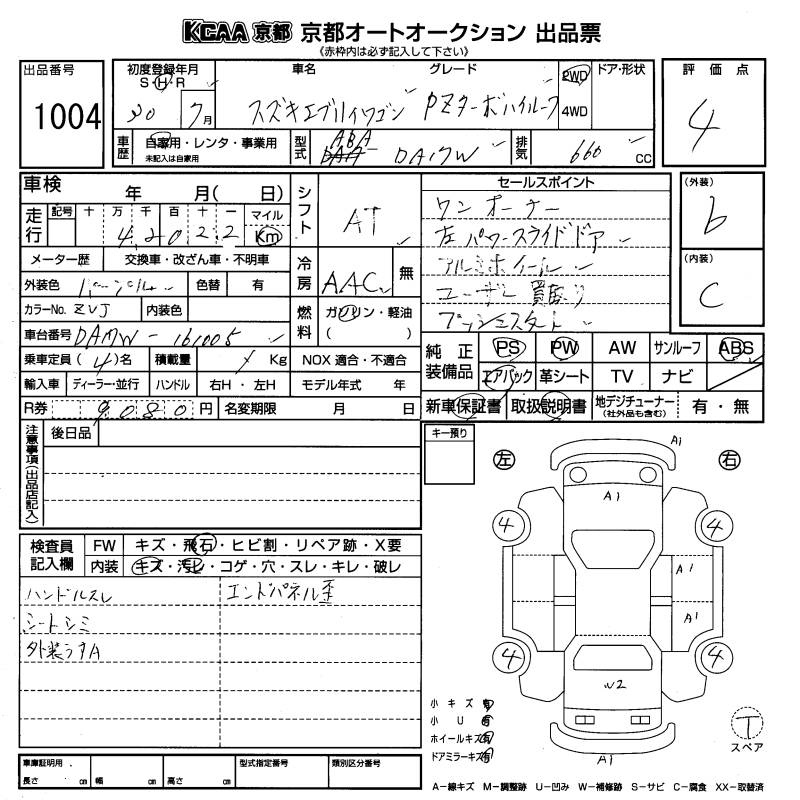 KCAA 京都 京都オートオークション 出品票
《赤枠内は必ず記入して下さい》
出品番号
1004
初度登録年月
S・H・R
30 7月
車名
スズキエブリイワゴン
グレード
PZターボハイルーフ
2WD
4WD
ドア・形状
評価点
4
車歴
自家用・レンタ・事業用
未記入は自家用
型式
ABA
DAA
DA17W
排気
660 CC
車検 年 月( 日)
走行
記号 十 万 千 百 十 一 マイル
4,2022 Km
メーター歴 交換車・改ざん車・不明車
外装色 パープル 色替 有
カラーNo. ZVJ 内装色
車台番号 DA17W-161005
乗車定員(4)名 積載量 Kg
輸入車 ディーラー・並行 ハンドル 右H・左H
R券 9080円 名変期限 月 日
シフト AT
冷房 AAC 無
燃料 ガソリン・軽油
( )
NOX適合・不適合
モデル年式 年
セールスポイント
ワンオーナー
左パワースライドドア
アルミホイール
ユーザー買取り
プッシュスタート
(外装)
b
(内装)
C
純正装備品
PS PW AW サンルーフ ABS
エアバック 革シート TV ナビ
新車保証書 取扱説明書 地デジチューナー(社外品も含む) 有・無
注意事項(出品店記入)
後日品
キー預り
検査員記入欄
FW キズ・飛石・ヒビ割・リペア跡・X要
内装 キズ・汚レ・コゲ・穴・スレ・キレ・破レ
ハンドルスレ
シートシミ
外装うすA
エンドパネル歪
左 右
A1
A1
4 4
A1
A1
4 4
W2
A1
小キズ有
小U有
ホイールキズ有
ドアミラーキズ有
T
スペア
車庫証明用
長さ cm 幅 cm 高さ cm
型式指定番号
類別区分番号
A−線キズ M−調整跡 U−凹み W−補修跡 S−サビ C−腐食 XX−取替済